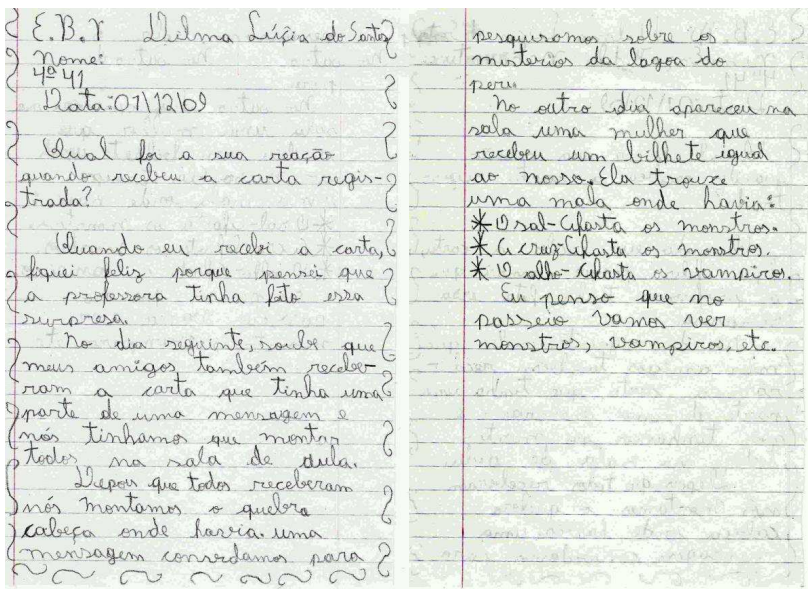 E.B.V Vilma Lúcia do Santos
Nome:
4ª 41
Data: 01/12/09
Qual foi a sua reação
quando recebeu a carta regis-
trada?
Quando eu recebi a carta,
fiquei feliz porque pensei que
a professora tinha feito essa
surpresa.
No dia seguinte, soube que
meus amigos também recebe-
ram a carta que tinha uma
parte de uma mensagem e
nós tinhamos que montar
todos na sala de aula.
Depois que todos receberam
nós montamos o quebra
cabeça onde havia uma
mensagem para
pesquisamos sobre os
misterios da lagoa do
peru.
No outro dia apareceu na
sala uma mulher que
recebeu um bilhete igual
ao nosso. Ela trouxe
uma mala onde havia:
* O sal-Afasta os monstros.
* A cruz-Afasta os monstros.
* O alho-Afasta os vampiros.
Eu penso que no
passeio vamos ver
monstros, vampiros, etc.